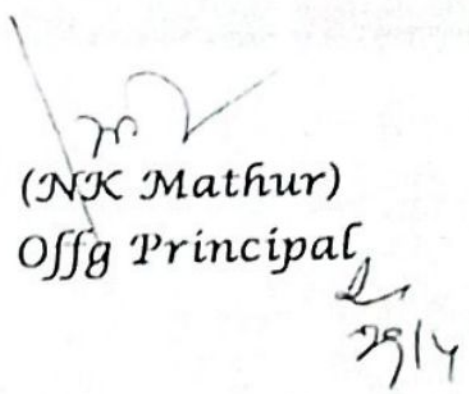 (NK Mathur)
Offg Principal
29/4